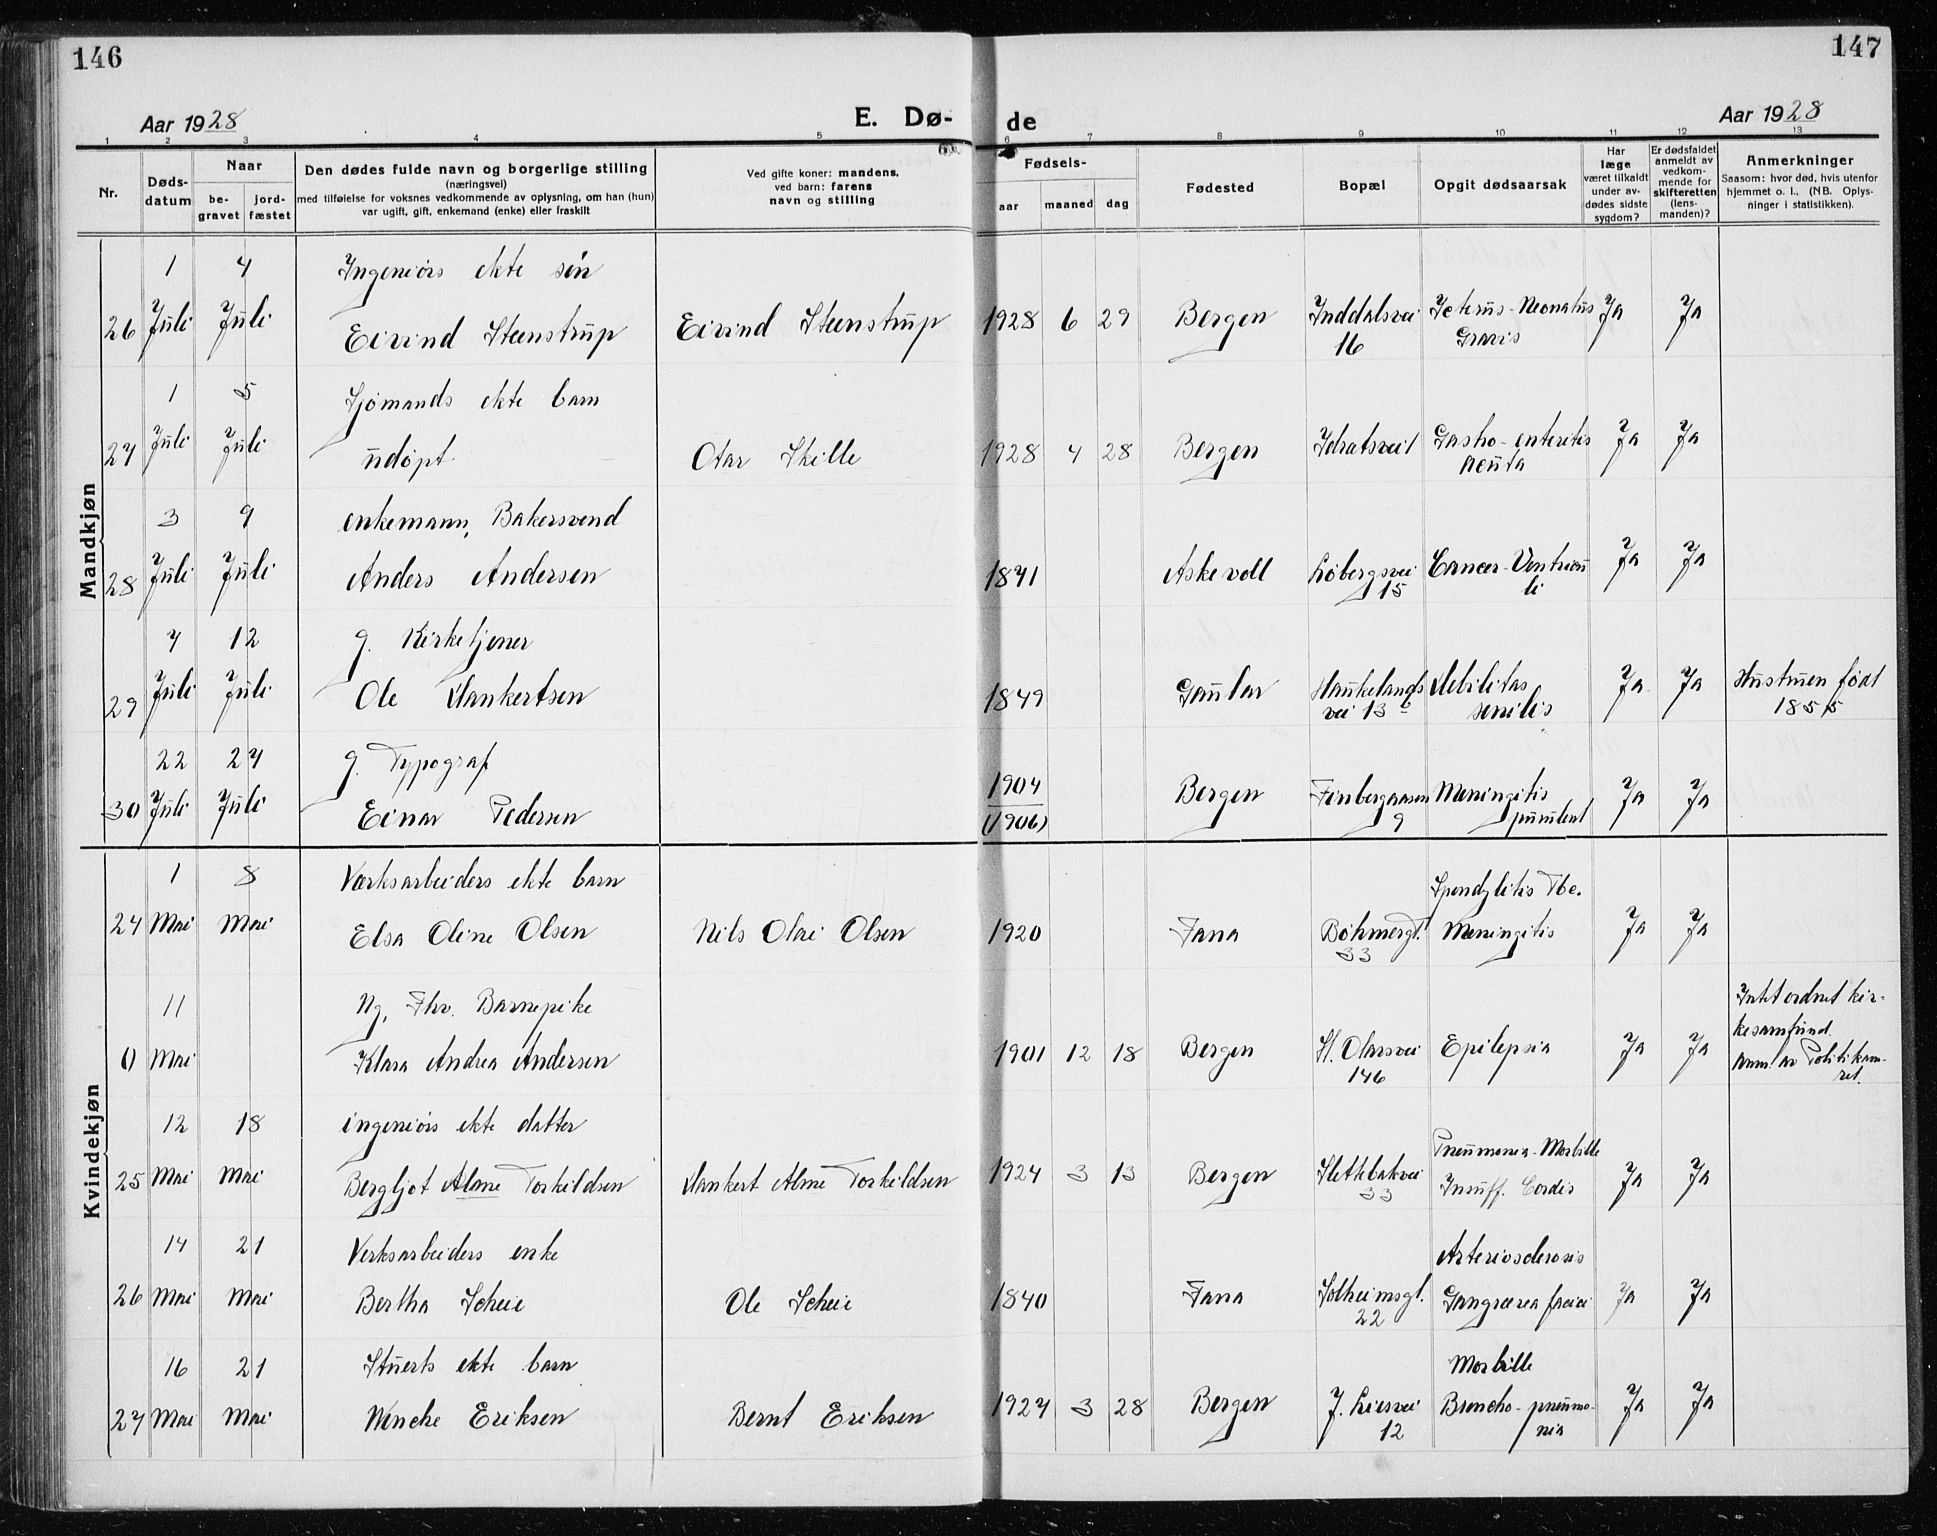 146
147
Aar 1928
E. Dø-
de
Aar 1928
1 2 3 4 5 6 7 8 9 10 11 12 13
Nr.
Døds-
datum
Naar
be-
gravet
jord-
fæstet
Den dødes fulde navn og borgerlige stilling
(næringsvei)
med tilføielse for voksnes vedkommende av oplysning, om han (hun)
var ugift, gift, enkemand (enke) eller fraskilt
Ved gifte koner: mandens,
ved barn: farens
navn og stilling
Fødsels-
aar
maaned
dag
Fødested
Bopæl
Opgit dødsaarsak
Har
læge
været tilkaldt
under av-
dødes sidste
sygdom?
Er dødsfaldet
anmeldt av
vedkom-
mende for
skifteretten
(lens-
manden)?
Anmerkninger
Saasom: hvor død, hvis utenfor
hjemmet o. l., (NB. Oplys-
ninger i statistikken).
Mandkjøn
1 4 Ingeniørs ekte søn
26 Juli Juli Eivind Steenstrup Eivind Steenstrup 1928 6 29 Bergen Inddalsvei Icterus-Neonatus Ja Ja
16 Gravis
1 5 Sjømands ekte barn
27 Juli Juli udøpt Otar Skille 1928 4 28 Bergen Idrætsvei 1 Gastro-enteritis Ja Ja
acuta
3 9 enkemann, Bakersvend
28 Juli Juli Anders Andersen 1841 Askevoll Løbergsvei Cancer-Ventricu Ja Ja
15 li
7 12 g. Kirketjener
29 Juli Juli Ole Dankertsen 1849 Gaular Haukelands Debilitas Ja Ja Hustruen født
vei 13 c senilis 1855
22 27 g. Typograf
30 Juli Juli Einar Pedersen 1904 Bergen Finbergaasen Meningitis Ja Ja
(1906) 9 purulent
Kvindekjøn
1 8 Værksarbeiders ekte barn Spondylitis Tbc.
24 Mai Mai Elsa Oline Olsen Nils Olai Olsen 1920 Fana Bøhmergt. Meningitis Ja Ja
33
11 Ug. Fhv. Barnepike Intet ordnet kir-
kesamfund.
0 Mai Klara Andrea Andersen 1901 12 18 Bergen St. Olavsvei Epilepsia Ja Ja Anm. av Politikam-
146 ret.
12 18 ingeniørs ekte datter Pneumonia-Morbille
25 Mai Mai Bergljot Alme Torkildsen Dankert Alme Torkildsen 1924 3 13 Bergen Slettebakvei Insuff. Cordis Ja Ja
33
14 21 Verksarbeiders enke Arteriosclerosis
26 Mai Mai Bertha Scheie Ole Scheie 1840 Fana Solheimsgt. Gangræna faciei Ja Ja
22
16 21 Stuerts ekte barn Morbille
27 Mai Mai Wenche Eriksen Bernt Eriksen 1927 3 28 Bergen J. Liesvei Broncho-pneumo- Ja Ja
12 nia